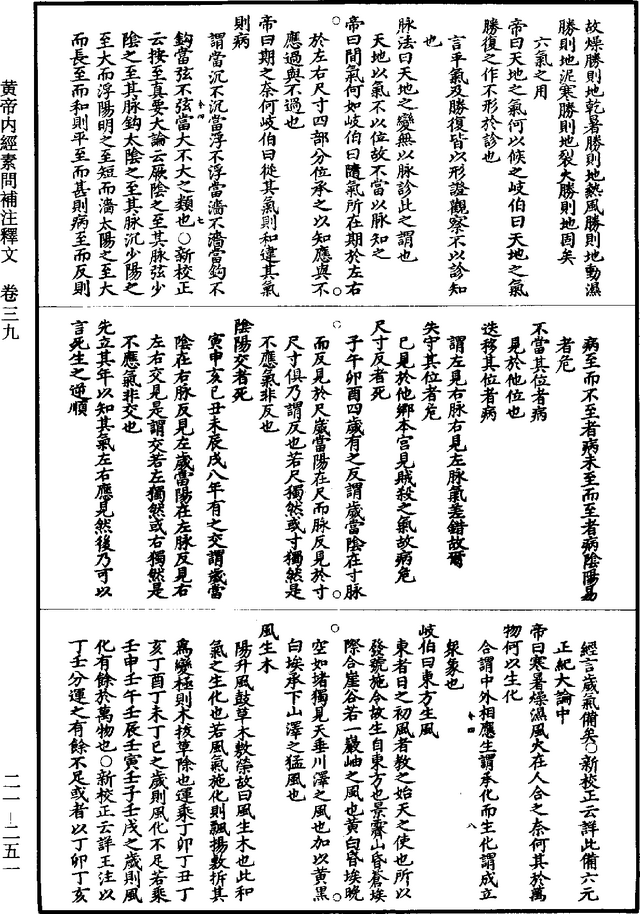 故燥勝則地乾暑勝則地熱風勝則地動濕
勝則地泥寒勝則地裂火勝則地固矣
六氣之用
帝曰天地之氣何以候之岐伯曰天地之氣
勝復之作不形於診也
言平氣及勝復皆以形證觀察不以診知
也
脉法曰天地之變無以脉診此之謂也
天地以氣不以位故不當以脉知之
帝曰間氣何如岐伯曰隨氣所在期於左右
於左右尺寸四部分位承之以知應與不
應過與不過也
帝曰期之奈何岐伯曰從其氣則和違其氣
則病
謂當沉不沉當浮不浮當濇不濇當鈎不
鈎當弦不弦當大不大之類也○新校正
云按至真要大論云厥陰之至其脉弦少
陰之至其脉鈎太陰之至其脉沉少陽之
至大而浮陽明之至短而濇太陽之至大
而長至而和則平至而甚則病至而反則
病至而不至者病未至而至者病陰陽易
者危
不當其位者病
見於他位也
迭移其位者病
謂左見右脉右見左脉氣差錯故爾
失守其位者危
已見於他鄉本宮見賊殺之氣故病危
尺寸反者死
子午卯酉四歲有之反謂歲當陰在寸脉
而反見於尺歲當陽在尺而脉反見於寸
尺寸俱乃謂反也若尺獨然或寸獨然是
不應氣非反也
陰陽交者死
寅申亥巳丑未辰戌八年有之交謂歲當
陰在右脉反見左歲當陽在左脉反見右
左右交見是謂交若左獨然或右獨然是
不應氣非交也
先立其年以知其氣左右應見然後乃可以
言死生之逆順
經言歲氣備矣○新校正云詳此備六元
正紀大論中
帝曰寒暑燥濕風火在人合之奈何其於萬
物何以生化
合謂中外相應生謂承化而生化謂成立
眾象也
岐伯曰東方生風
東者日之初風者教之始天之使也所以
發號施令故生自東方也景霽山昏蒼埃
際合崖谷若一巖岫之風也黄白昏埃晚
空如堵獨見天垂川澤之風也加以黄黑
白埃承下山澤之猛風也
風生木
陽升風鼓草木敷榮故曰風生木也此和
氣之生化也若風氣施化則飄揚敷拆其
爲變極則木拔草除也運乘丁卯丁丑丁
亥丁酉丁未丁巳之歲則風化不足若乘
壬申壬午壬辰壬寅壬子壬戌之歲則風
化有餘於萬物也○新校正云詳王注以
丁壬分運之有餘不足或者以丁卯丁亥
黄帝内經素問補注釋文 卷三九
二一—二五一